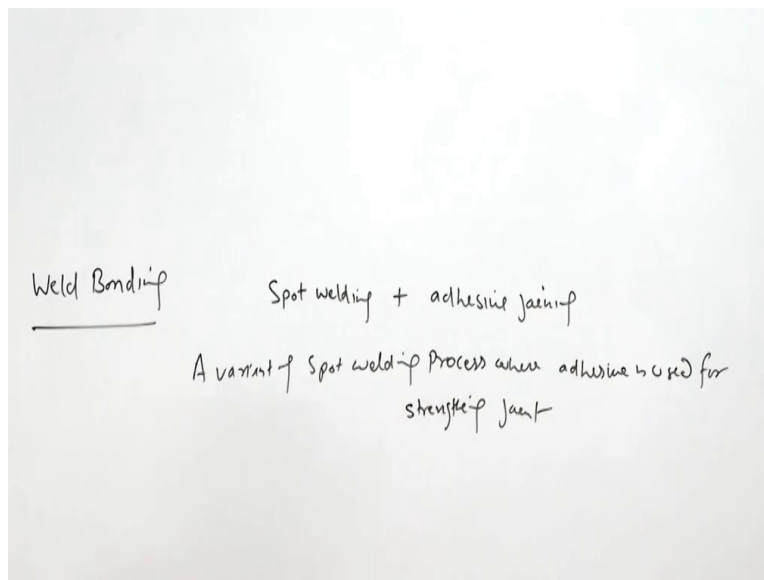 Weld Bonding
Spot welding + adhesive joining
A variant of Spot welding Process where adhesive is used for
strengthing joint